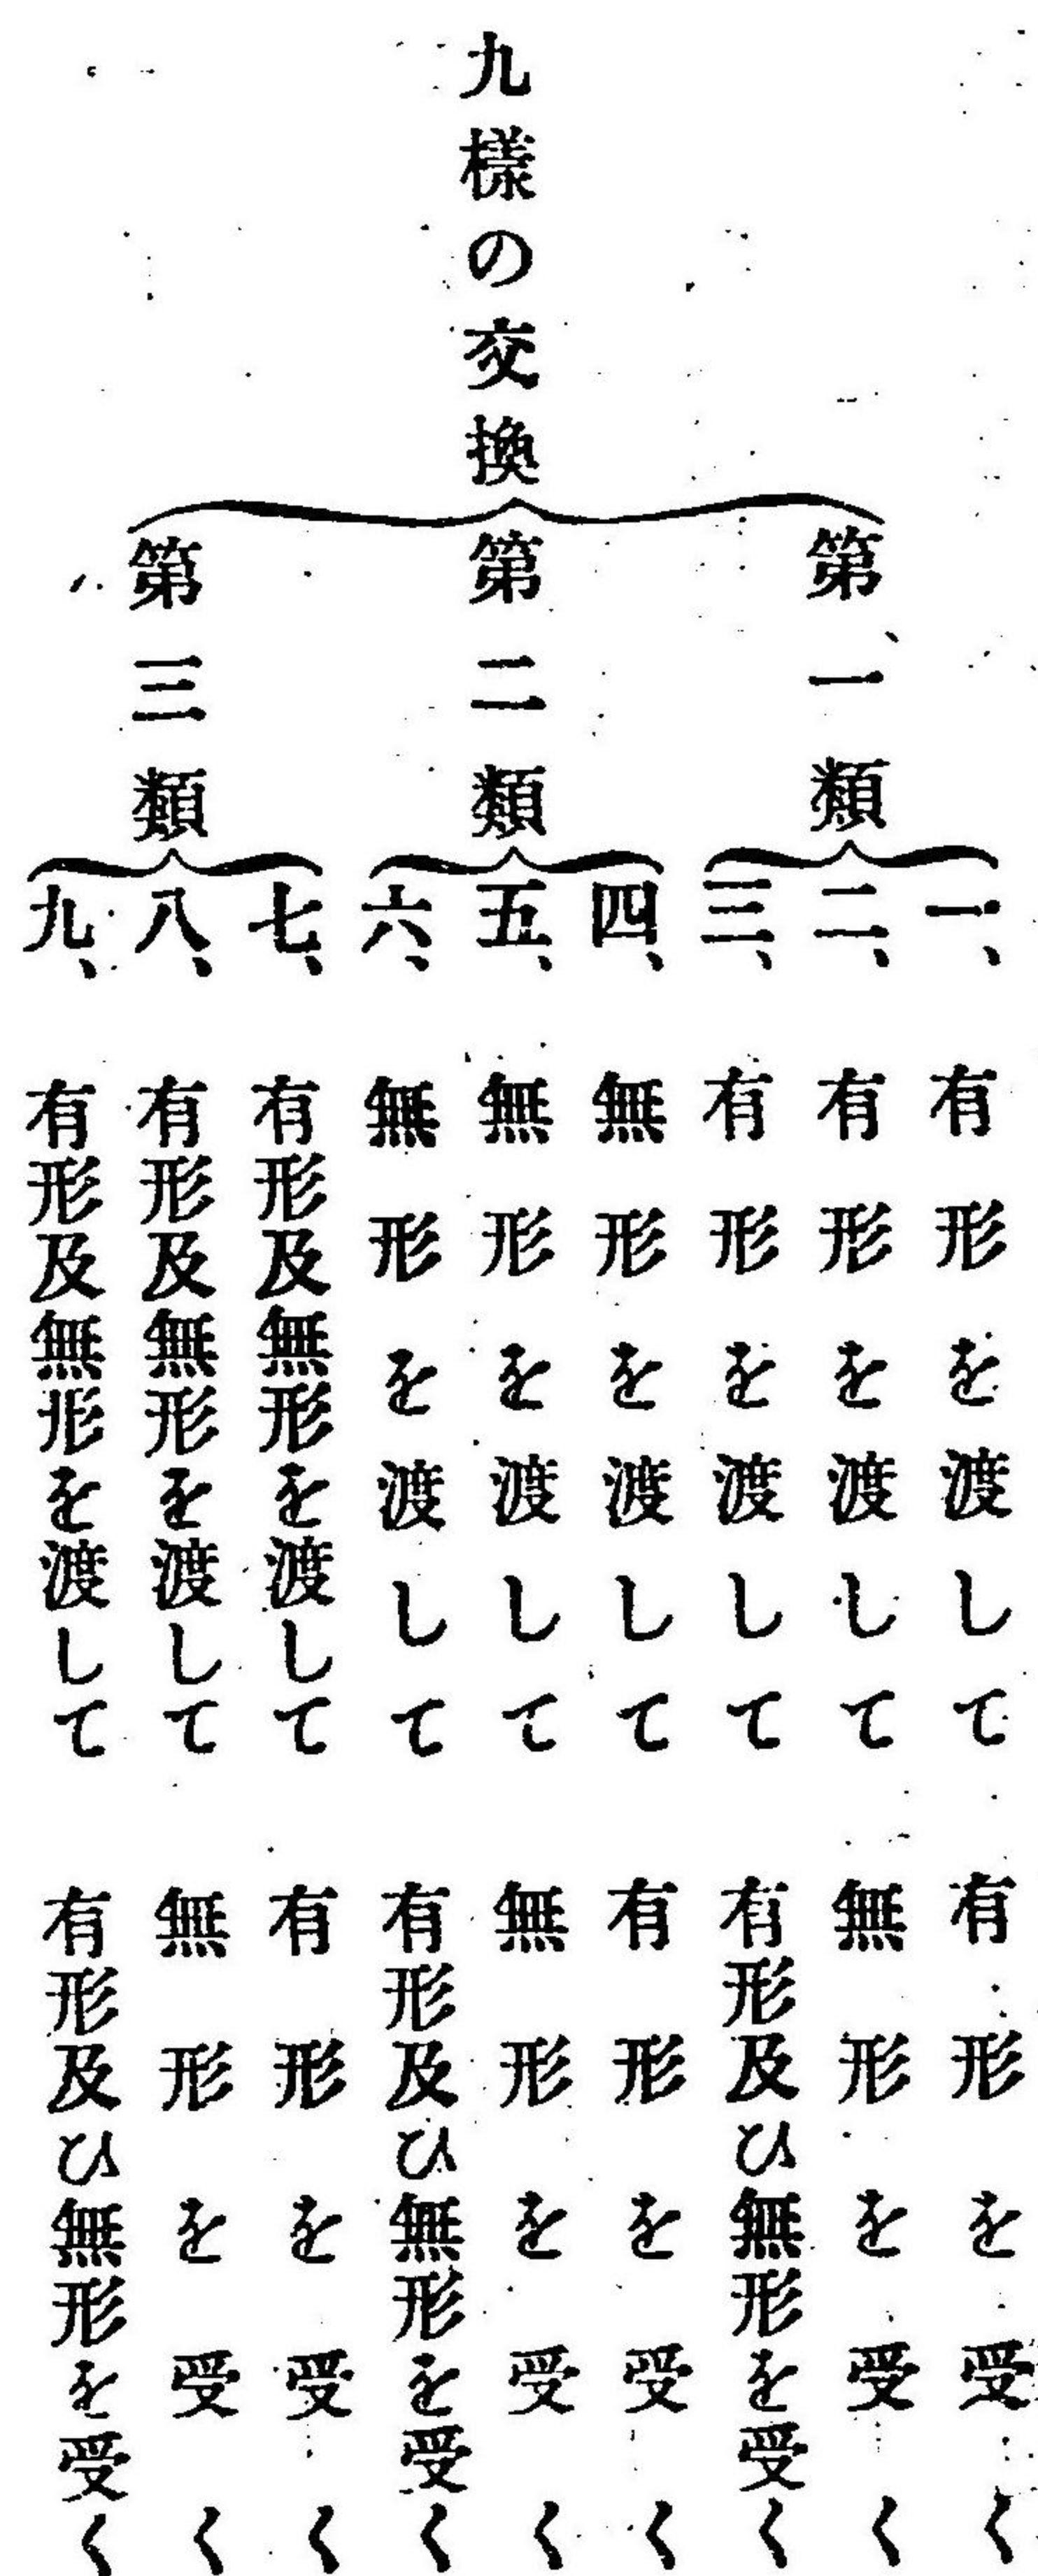 九樣の交換
第一類
一、有形を渡して 有形を受く
二、有形を渡して 無形を受く
三、有形を渡して 有形及ひ無形を受く
第二類
四、無形を渡して 有形を受く
五、無形を渡して 無形を受く
六、無形を渡して 有形及ひ無形を受く
第三類
七、有形及無形を渡して 有形を受く
八、有形及無形を渡して 無形を受く
九、有形及無形を渡して 有形及ひ無形を受く